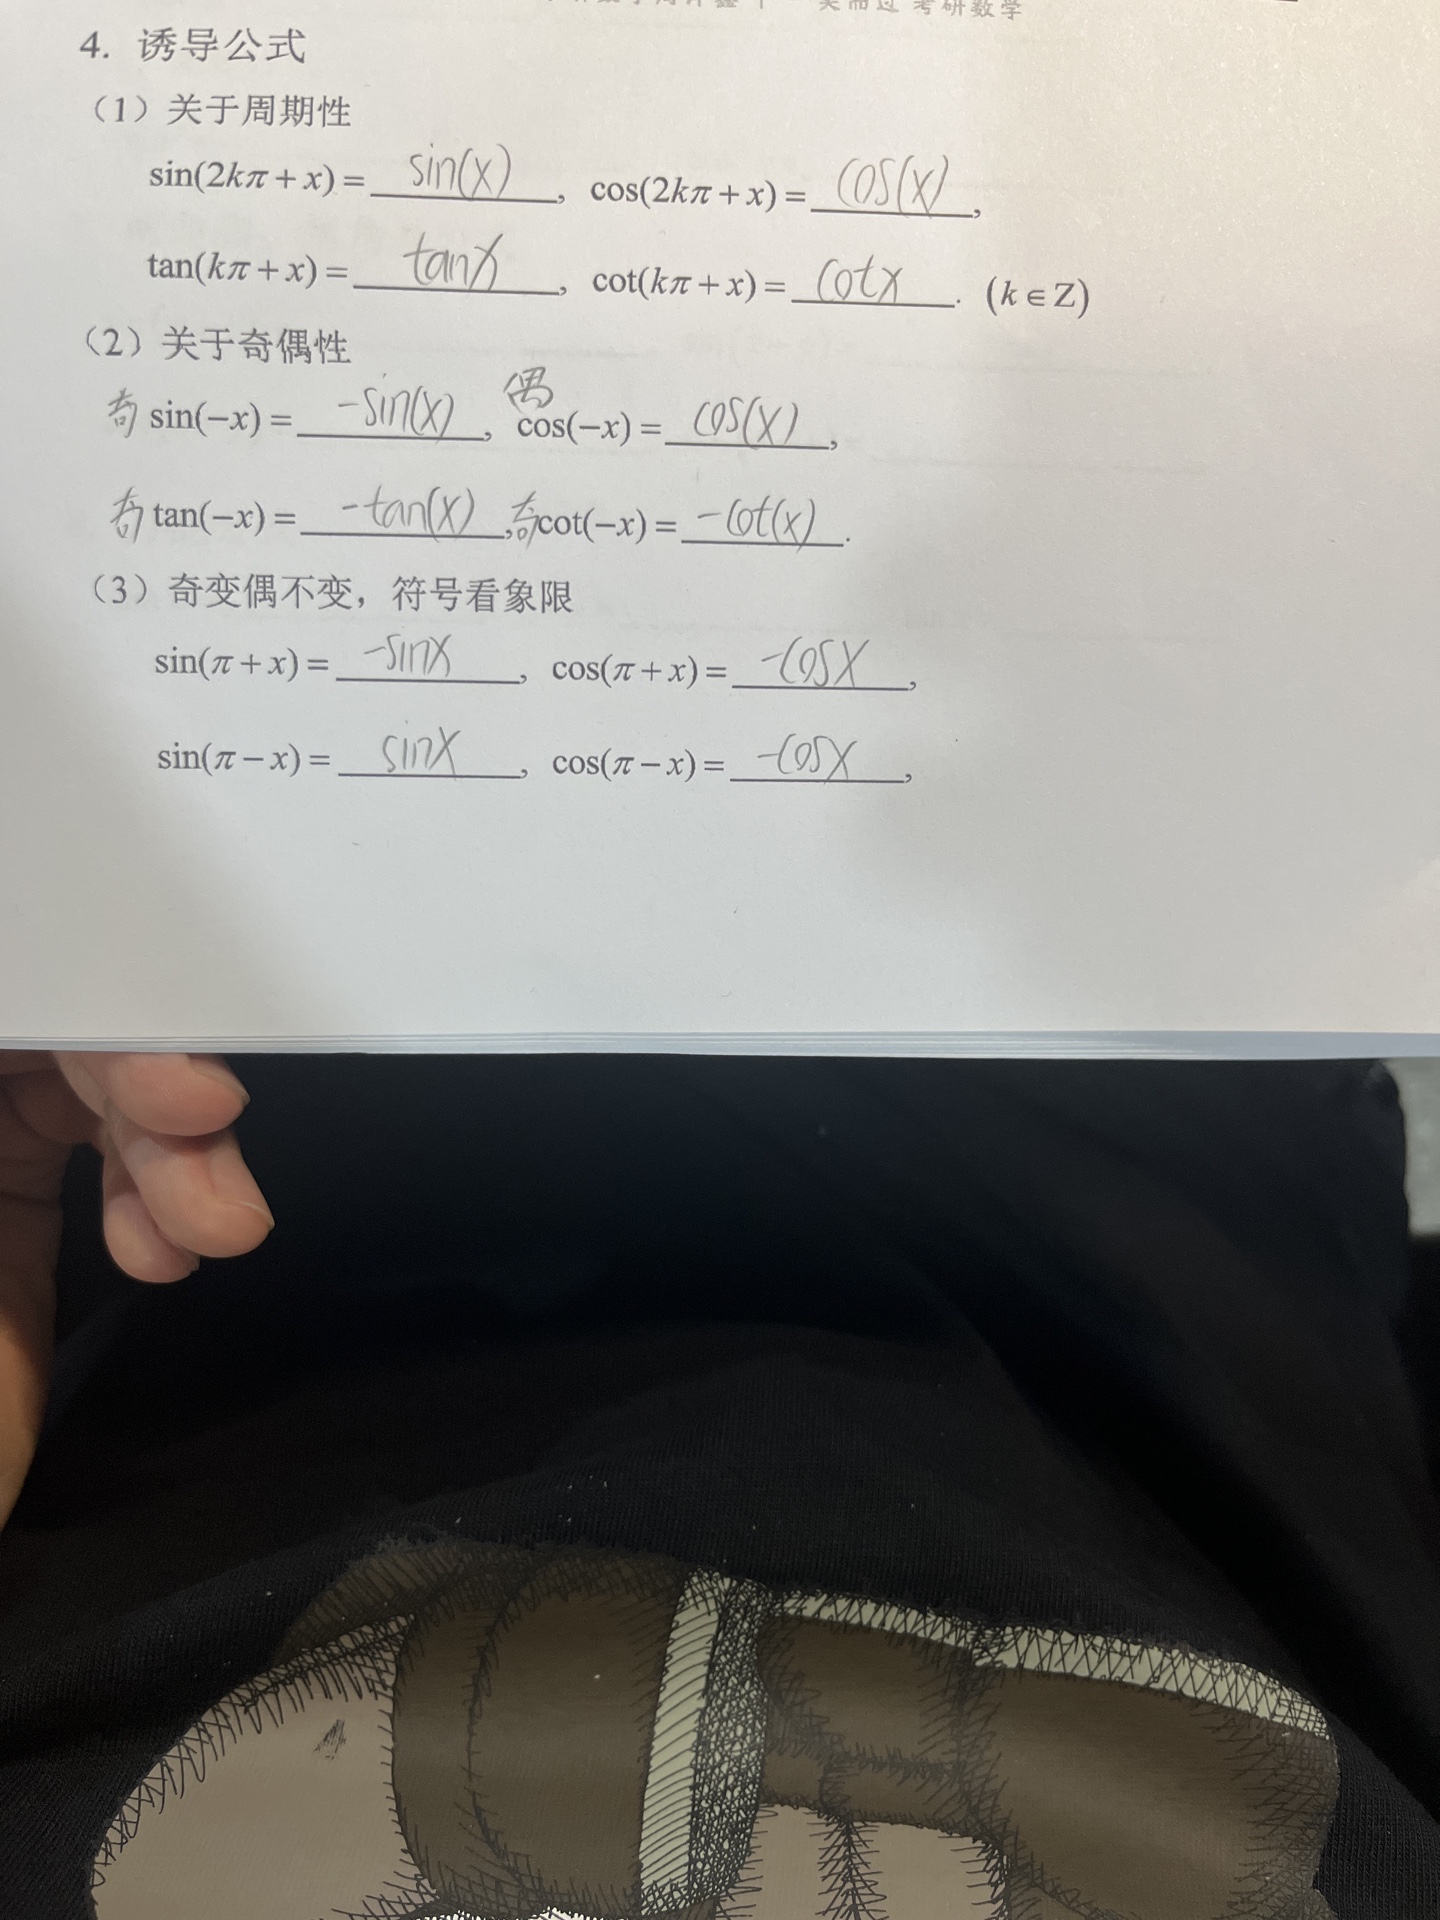 考研数学
4. 诱导公式
（1）关于周期性
sin(2kπ+x)= sin(x) , cos(2kπ+x)= cos(x) ,
tan(kπ+x)= tanx , cot(kπ+x)= cotx . (k∈Z)
（2）关于奇偶性
奇 sin(−x)= -sin(x) , 偶 cos(−x)= cos(x) ,
奇 tan(−x)= -tan(x) , 奇 cot(−x)= -cot(x) .
（3）奇变偶不变，符号看象限
sin(π+x)= -sinx , cos(π+x)= -cosx ,
sin(π−x)= sinx , cos(π−x)= -cosx ,